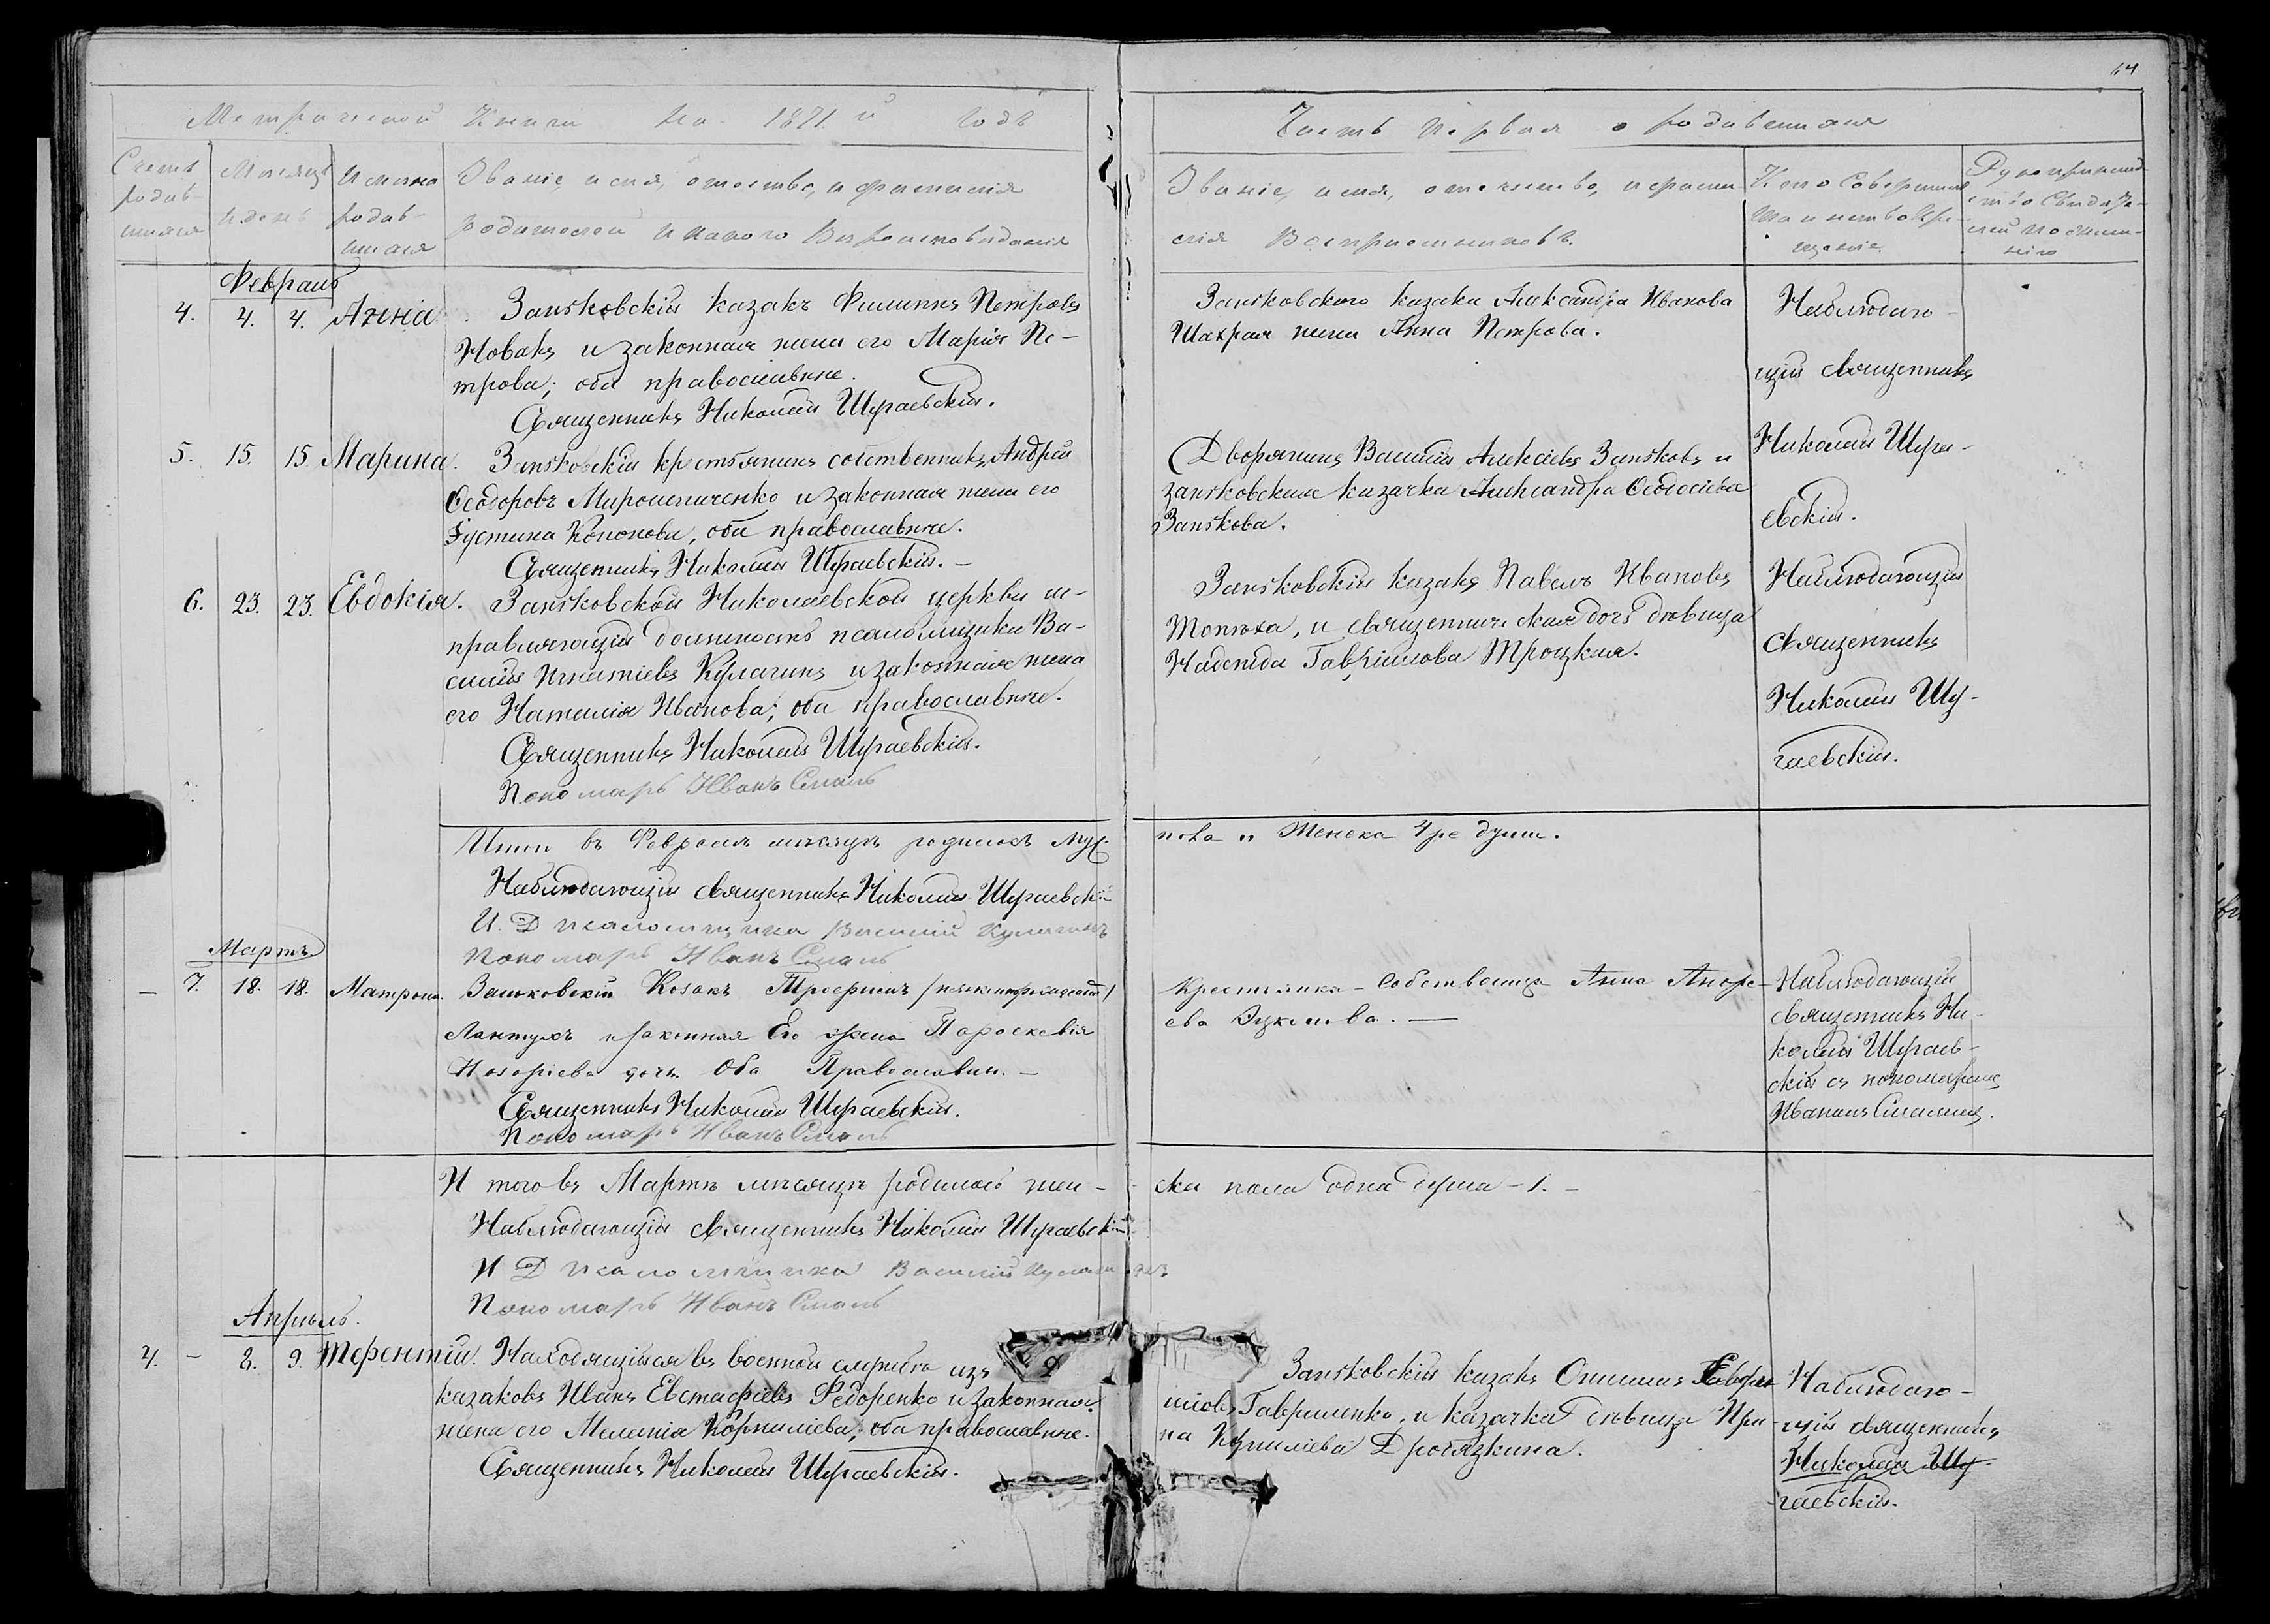 64
Метрической Книги на 1871й Годъ
Часть первая о родившихся
Счетъ родив-шихся
Мѣсяцъ и день
Имена родив-шихся
Званіе, имя, отчество, и фамилія
родителей и какого Вѣроисповѣданія
Званіе, имя, отечество, и фами-
лія Воспріемниковъ.
Кто Совершалъ
таинство Кре-
щенія.
Рукоприклад-
ство Свидѣте-
лей по жела-
нію
Февраль
4. 4. 4. Агнія
Запсковскій казакъ Филиппъ Петровъ
Новакъ и законная жена его Марія Пе-
трова; оба православные.
Священникъ Николай Шугаевскій.
Запсковскаго казака Александра Иванова
Шахрая жена Анна Петрова.
Наблюдаю-
щій священникъ
Николай Шуга-
евскій.
5. 15. 15. Марина.
Запсковскій крестьянинъ собственникъ Андрей
Ѳеодоровъ Мирошниченко и законная жена его
Іустина Кононова, оба православные.
Священникъ Николай Шугаевскій.
Дворянинъ Василій Алексіевъ Запсковъ и
запсковская казачка Александра Ѳеодосіева
Запскова.
6. 23. 23. Евдокія.
Запсковской Николаевской церкви и-
правляющій должность псаломщика Ва-
силій Игнатіевъ Кулагинъ и законная жена
его Наталія Иванова; оба православные.
Священникъ Николай Шугаевскій.
Пономарь Иванъ Смаль
Запсковскій казакъ Павелъ Ивановъ
Топюха, и священническая дочь дѣвица
Надежда Гавріилова Троцкая.
Наблюдающій
священникъ
Николай Шу-
гаевскій.
Итого въ Февралѣ мѣсяцѣ родилось Муж.
пола и Женска 4ре душъ.
Наблюдающій священникъ Николай Шугаевскій
И. Д псаломщика Василій Кулагинъ
Пономарь Иванъ Смаль
Мартъ
7. 18. 18. Матрона.
Запсковскій Козакъ
Лантухъ и законная Его жена Параскевія
Назаріева дочь. Оба Православны.
Священникъ Николай Шугаевскій.
Пономарь Иванъ Смаль
Крестьянка-Собственица Анна Андре-
ева
Наблюдающій
священникъ Ни-
колай Шугаев-
скій съ пономаремъ
Иваномъ Смалемъ.
И того въ Мартѣ мѣсяцѣ родилось жен-
ска пола одна душа - 1. -
Наблюдающій священникъ Николай Шугаевскій
И Д псаломщика Василій Кулагинъ
Пономарь Иванъ Смаль
Апрѣль.
4. - 8. 9. Терентій.
Находящійся въ военной службѣ изъ
казаковъ Иванъ Евстафіевъ Федоренко и законная
жена его Меланія Корниліева, оба православные.
Священникъ Николай Шугаевскій.
Запсковскій казакъ Онисимъ
Гавриленко, и казачка дѣвица Ири-
на Корниліева Дробязкина.
Наблюдаю-
щій священникъ
Николай Шу-
гаевскій.